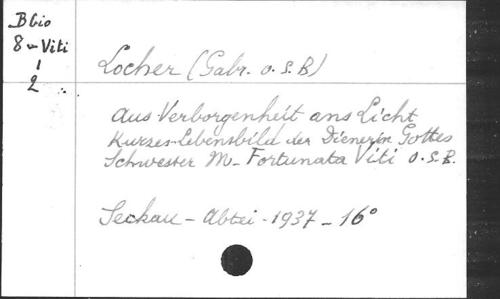 B bio
8 - Viti
1
2
Locher (Gabr. O.S.B)
Aus Verborgenheit ans Licht
Kurzes-Lebensbild der Dienerin Gottes
Schwester M- Fortunata Viti O.S.B.
Seckau - Abtei - 1937 - 16°